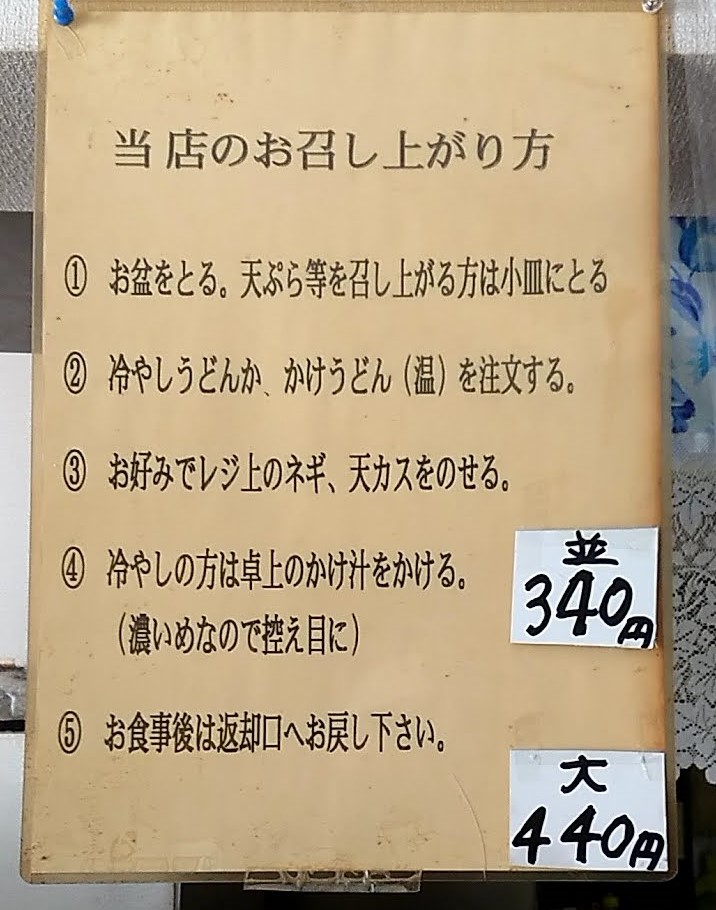 当店のお召し上がり方
① お盆をとる。天ぷら等を召し上がる方は小皿にとる
② 冷やしうどんか、かけうどん（温）を注文する。
③ お好みでレジ上のネギ、天カスをのせる。
④ 冷やしの方は卓上のかけ汁をかける。
（濃いめなので控え目に）
⑤ お食事後は返却口へお戻し下さい。
並
340円
大
440円